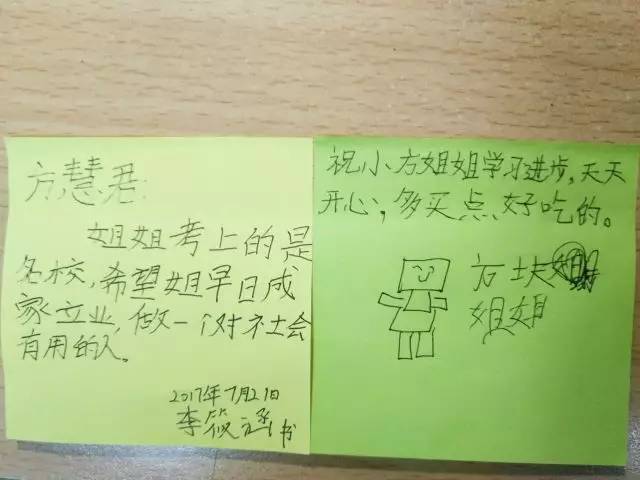 方慧君：
姐姐考上的是
名校，希望姐早日成
家立业，做一个对社会
有用的人。
2017年7月21日
李筱涵书
祝小方姐姐学习进步，天天
开心，多买点好吃的。
方块
姐姐